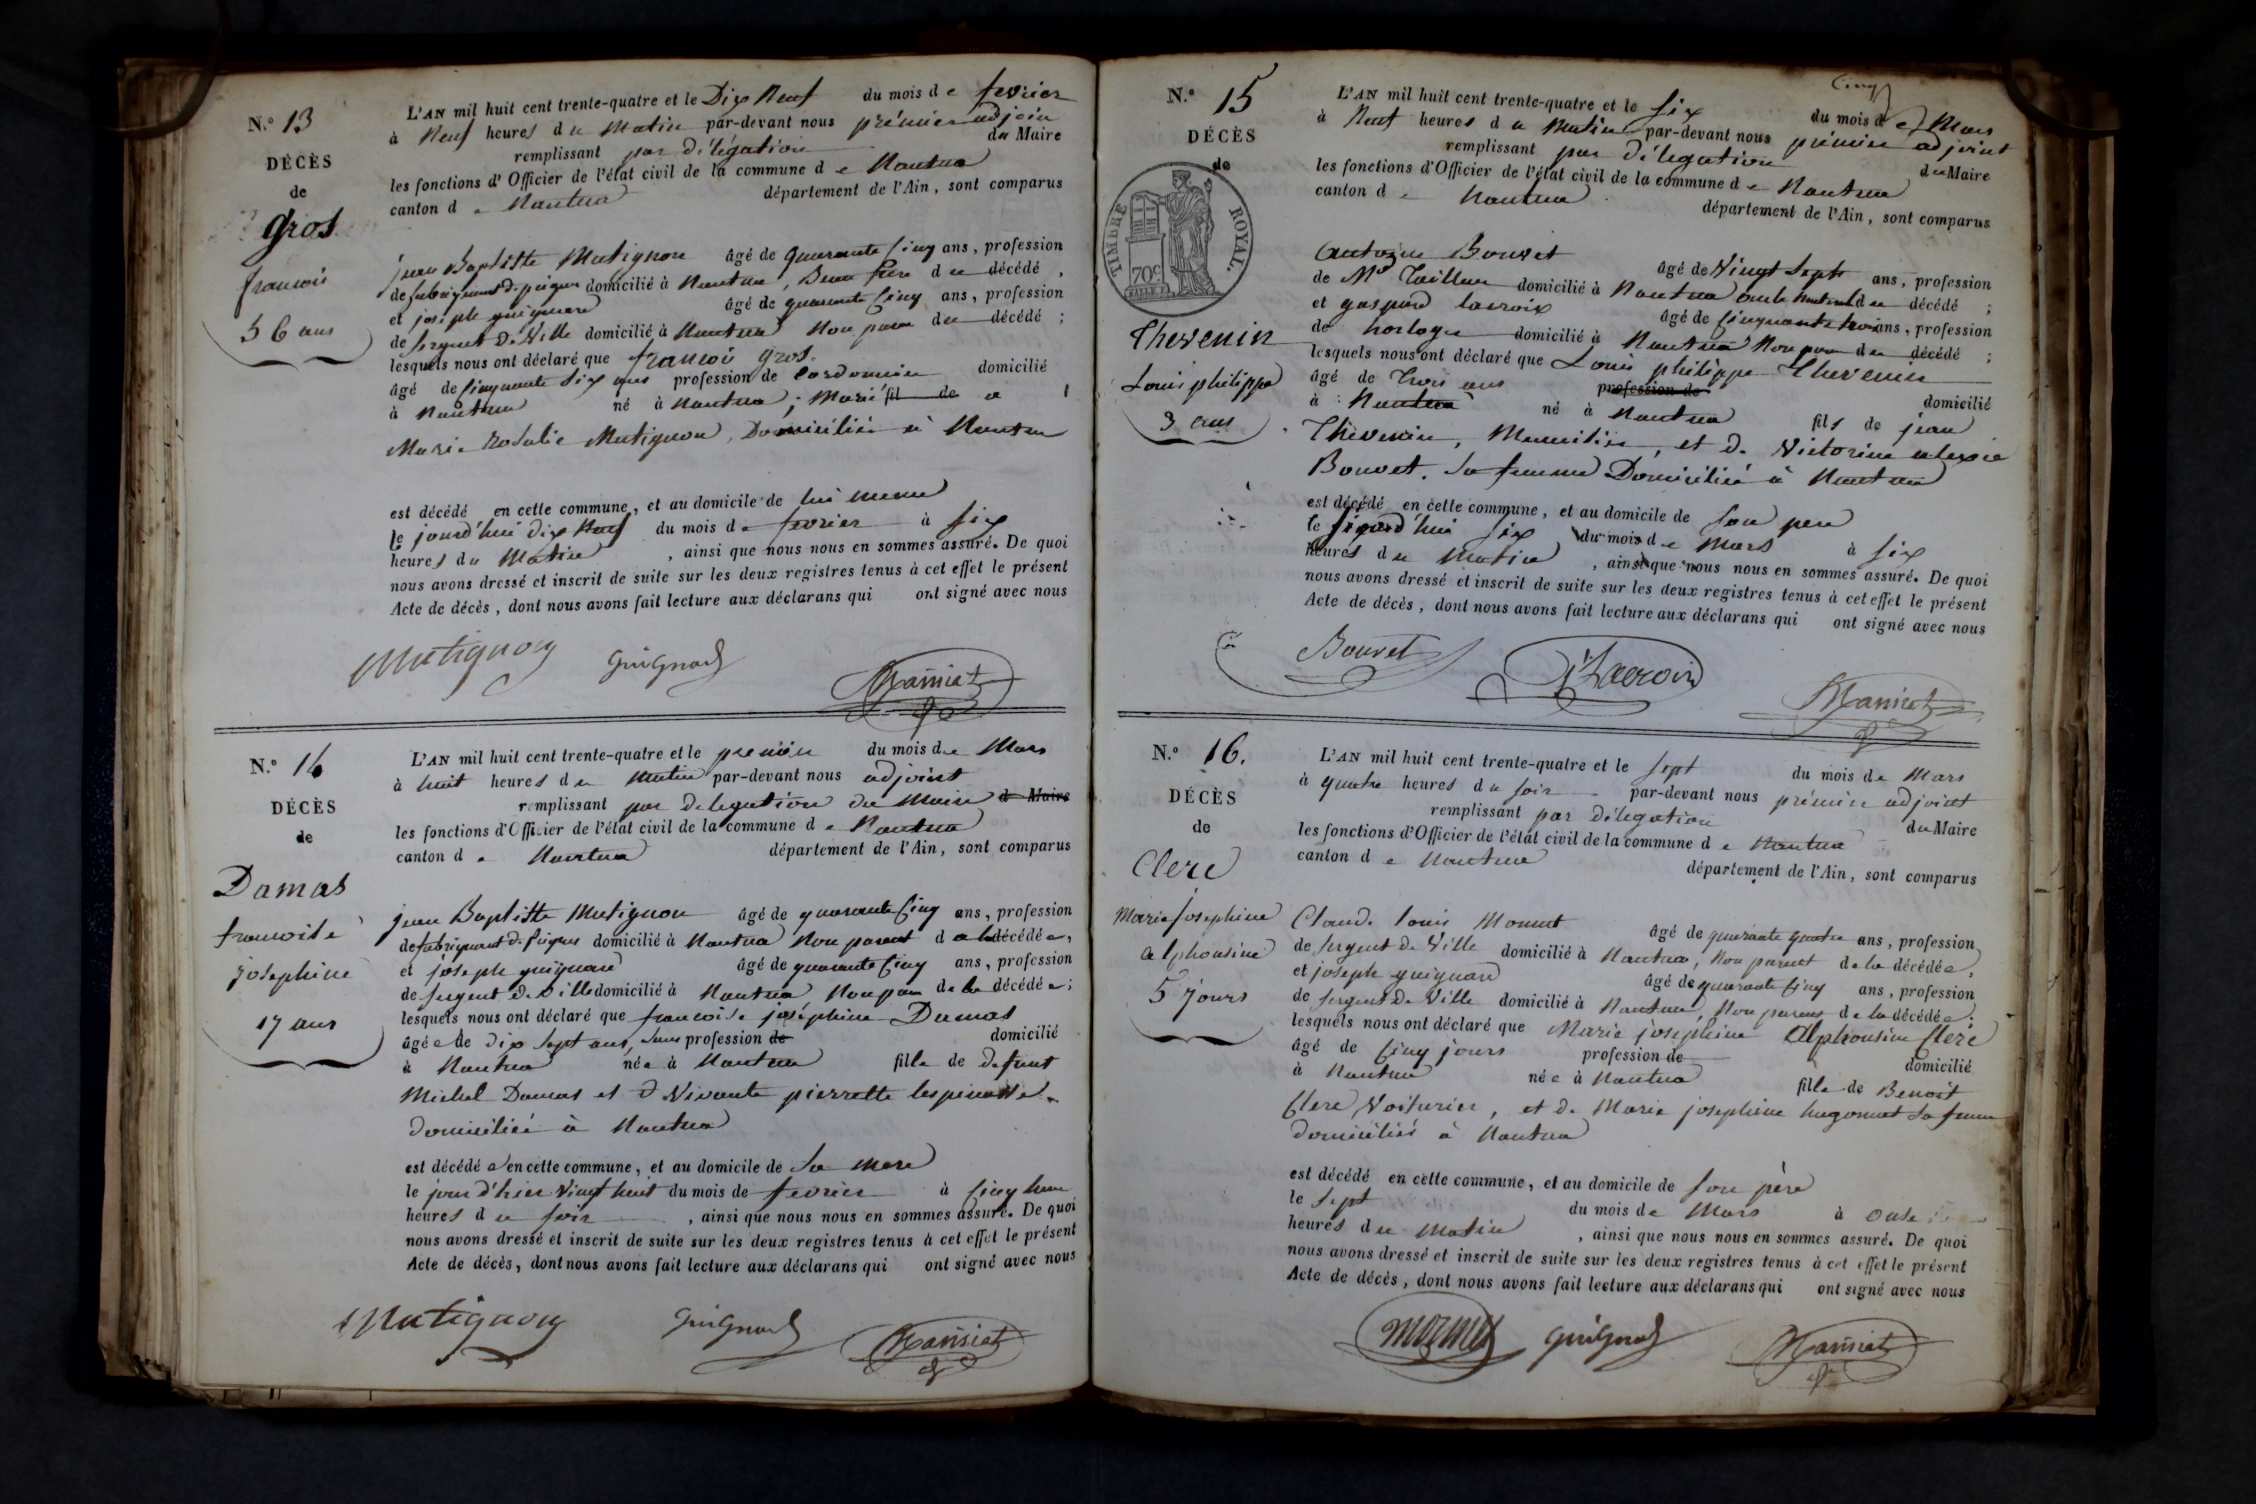 N.º 13
DÉCÈS
de
Gros
francois
56 ans
L'AN mil huit cent trente-quatre et le Dix Neuf du mois de fevrier
à Neuf heures du Matin par-devant nous prémier adjoin
remplissant par délégation du Maire
les fonctions d'Officier de l'état civil de la commune de Nantua
canton de Nantua département de l'Ain, sont comparus
jean Baptiste Mutignon âgé de quarante Cinq ans, profession
de fabriquant de peignes domicilié à Nantua, Beau frere du décédé,
et joseph guignard âgé de quarante Cinq ans, profession
de sergent de Ville domicilié à Nantua Non paren du décédé;
lesquels nous ont déclaré que francois gros.
âgé de Cinquante Six ans profession de Cordonnier domicilié
à Nantua né à Nantua; Marié fil de a
Marie rosalie Mutignon, Domiciliée à Nantua
est décédé en cette commune, et au domicile de lui meme
le jourd'hui dix Neuf du mois de fevrier à Six
heures du Matin, ainsi que nous nous en sommes assuré. De quoi
nous avons dressé et inscrit de suite sur les deux registres tenus à cet effet le présent
Acte de décès, dont nous avons fait lecture aux déclarans qui ont signé avec nous
Mutignon Guignard
N.º 14
DÉCÈS
de
Damas
francoise
josephine
17 ans
L'AN mil huit cent trente-quatre et le premier du mois de Mars
à huit heures du matin par-devant nous adjoint
remplissant par delegation du Maire d Maire
les fonctions d'Officier de l'état civil de la commune de Nantua
canton de Nantua département de l'Ain, sont comparus
jean Baptiste Mutignon âgé de quarante Cinq ans, profession
de fabriquant de peignes domicilié à Nantua Non parent de la décédée,
et joseph guignard âgé de quarante Cinq ans, profession
de sergent de Ville domicilié à Nantua Non paren de la décédée;
lesquels nous ont déclaré que francoise joséphine Damas
âgée de dix Sept ans, Sans profession de domicilié
à Nantua née à Nantua fille de defunt
Michel Damas et d Vivante pierrette lespinasse
domiciliée à Nantua
est décédée en cette commune, et au domicile de Sa mere
le jour d'hier Vingt huit du mois de fevrier à Cinq heure
heures du soir, ainsi que nous nous en sommes assuré. De quoi
nous avons dressé et inscrit de suite sur les deux registres tenus à cet effet le présent
Acte de décès, dont nous avons fait lecture aux déclarans qui ont signé avec nous
Mutignon Guignard
N.º 15
DÉCÈS
de
TIMBRE ROYAL.
70c
Thevenin
Louis philippe
3 ans
Cinq
L'AN mil huit cent trente-quatre et le Six du mois de Mars
à Neuf heures du Matin par-devant nous prémier adjoint
remplissant par délégation du Maire
les fonctions d'Officier de l'état civil de la commune de Nantua
canton de Nantua département de l'Ain, sont comparus
Antoine Bouvet âgé de Vingt Sept ans, profession
de Md Tailleur domicilié à Nantua oncle maternel du décédé;
et gaspard lacroix âgé de Cinquante trois ans, profession
de horloger domicilié à Nantua Non paren du décédé;
lesquels nous ont déclaré que Louis philippe Thevenin
âgé de Trois ans profession de domicilié
à Nantua né à Nantua fils de jean
Thevenin, Menuisier, et de Victorine alexie
Bouvet. Sa femme Domicilié à Nantua
est décédé en cette commune, et au domicile de Son pere
le jourd'hui Six du mois de Mars à Six
heures du Matin, ainsi que nous nous en sommes assuré. De quoi
nous avons dressé et inscrit de suite sur les deux registres tenus à cet effet le présent
Acte de décès, dont nous avons fait lecture aux déclarans qui ont signé avec nous
Bouvet Lacroix
N.º 16.
DÉCÈS
de
Clerc
Marie josephine
alphonsine
5 jours
L'AN mil huit cent trente-quatre et le Sept du mois de Mars
à quatre heures du soir par-devant nous prémier adjoint
remplissant par délégation du Maire
les fonctions d'Officier de l'état civil de la commune de Nantua
canton de Nantua département de l'Ain, sont comparus
Claude louis Mornet âgé de quarante quatre ans, profession
de sergent de Ville domicilié à Nantua, Non parent de la décédée,
et joseph guignard âgé de quarante Cinq ans, profession
de sergent de Ville domicilié à Nantua, Non parens de la décédée;
lesquels nous ont déclaré que Marie josephine Alphonsine Clerc
âgé de Cinq jours profession de domicilié
à Nantua née à Nantua fille de Benoit
Clerc Voiturier, et de Marie josephine hugonnet Sa femme
domiciliés à Nantua
est décédé en cette commune, et au domicile de Son père
le Sept du mois de Mars à onse
heures du Matin, ainsi que nous nous en sommes assuré. De quoi
nous avons dressé et inscrit de suite sur les deux registres tenus à cet effet le présent
Acte de décès, dont nous avons fait lecture aux déclarans qui ont signé avec nous
Mornet Guignard